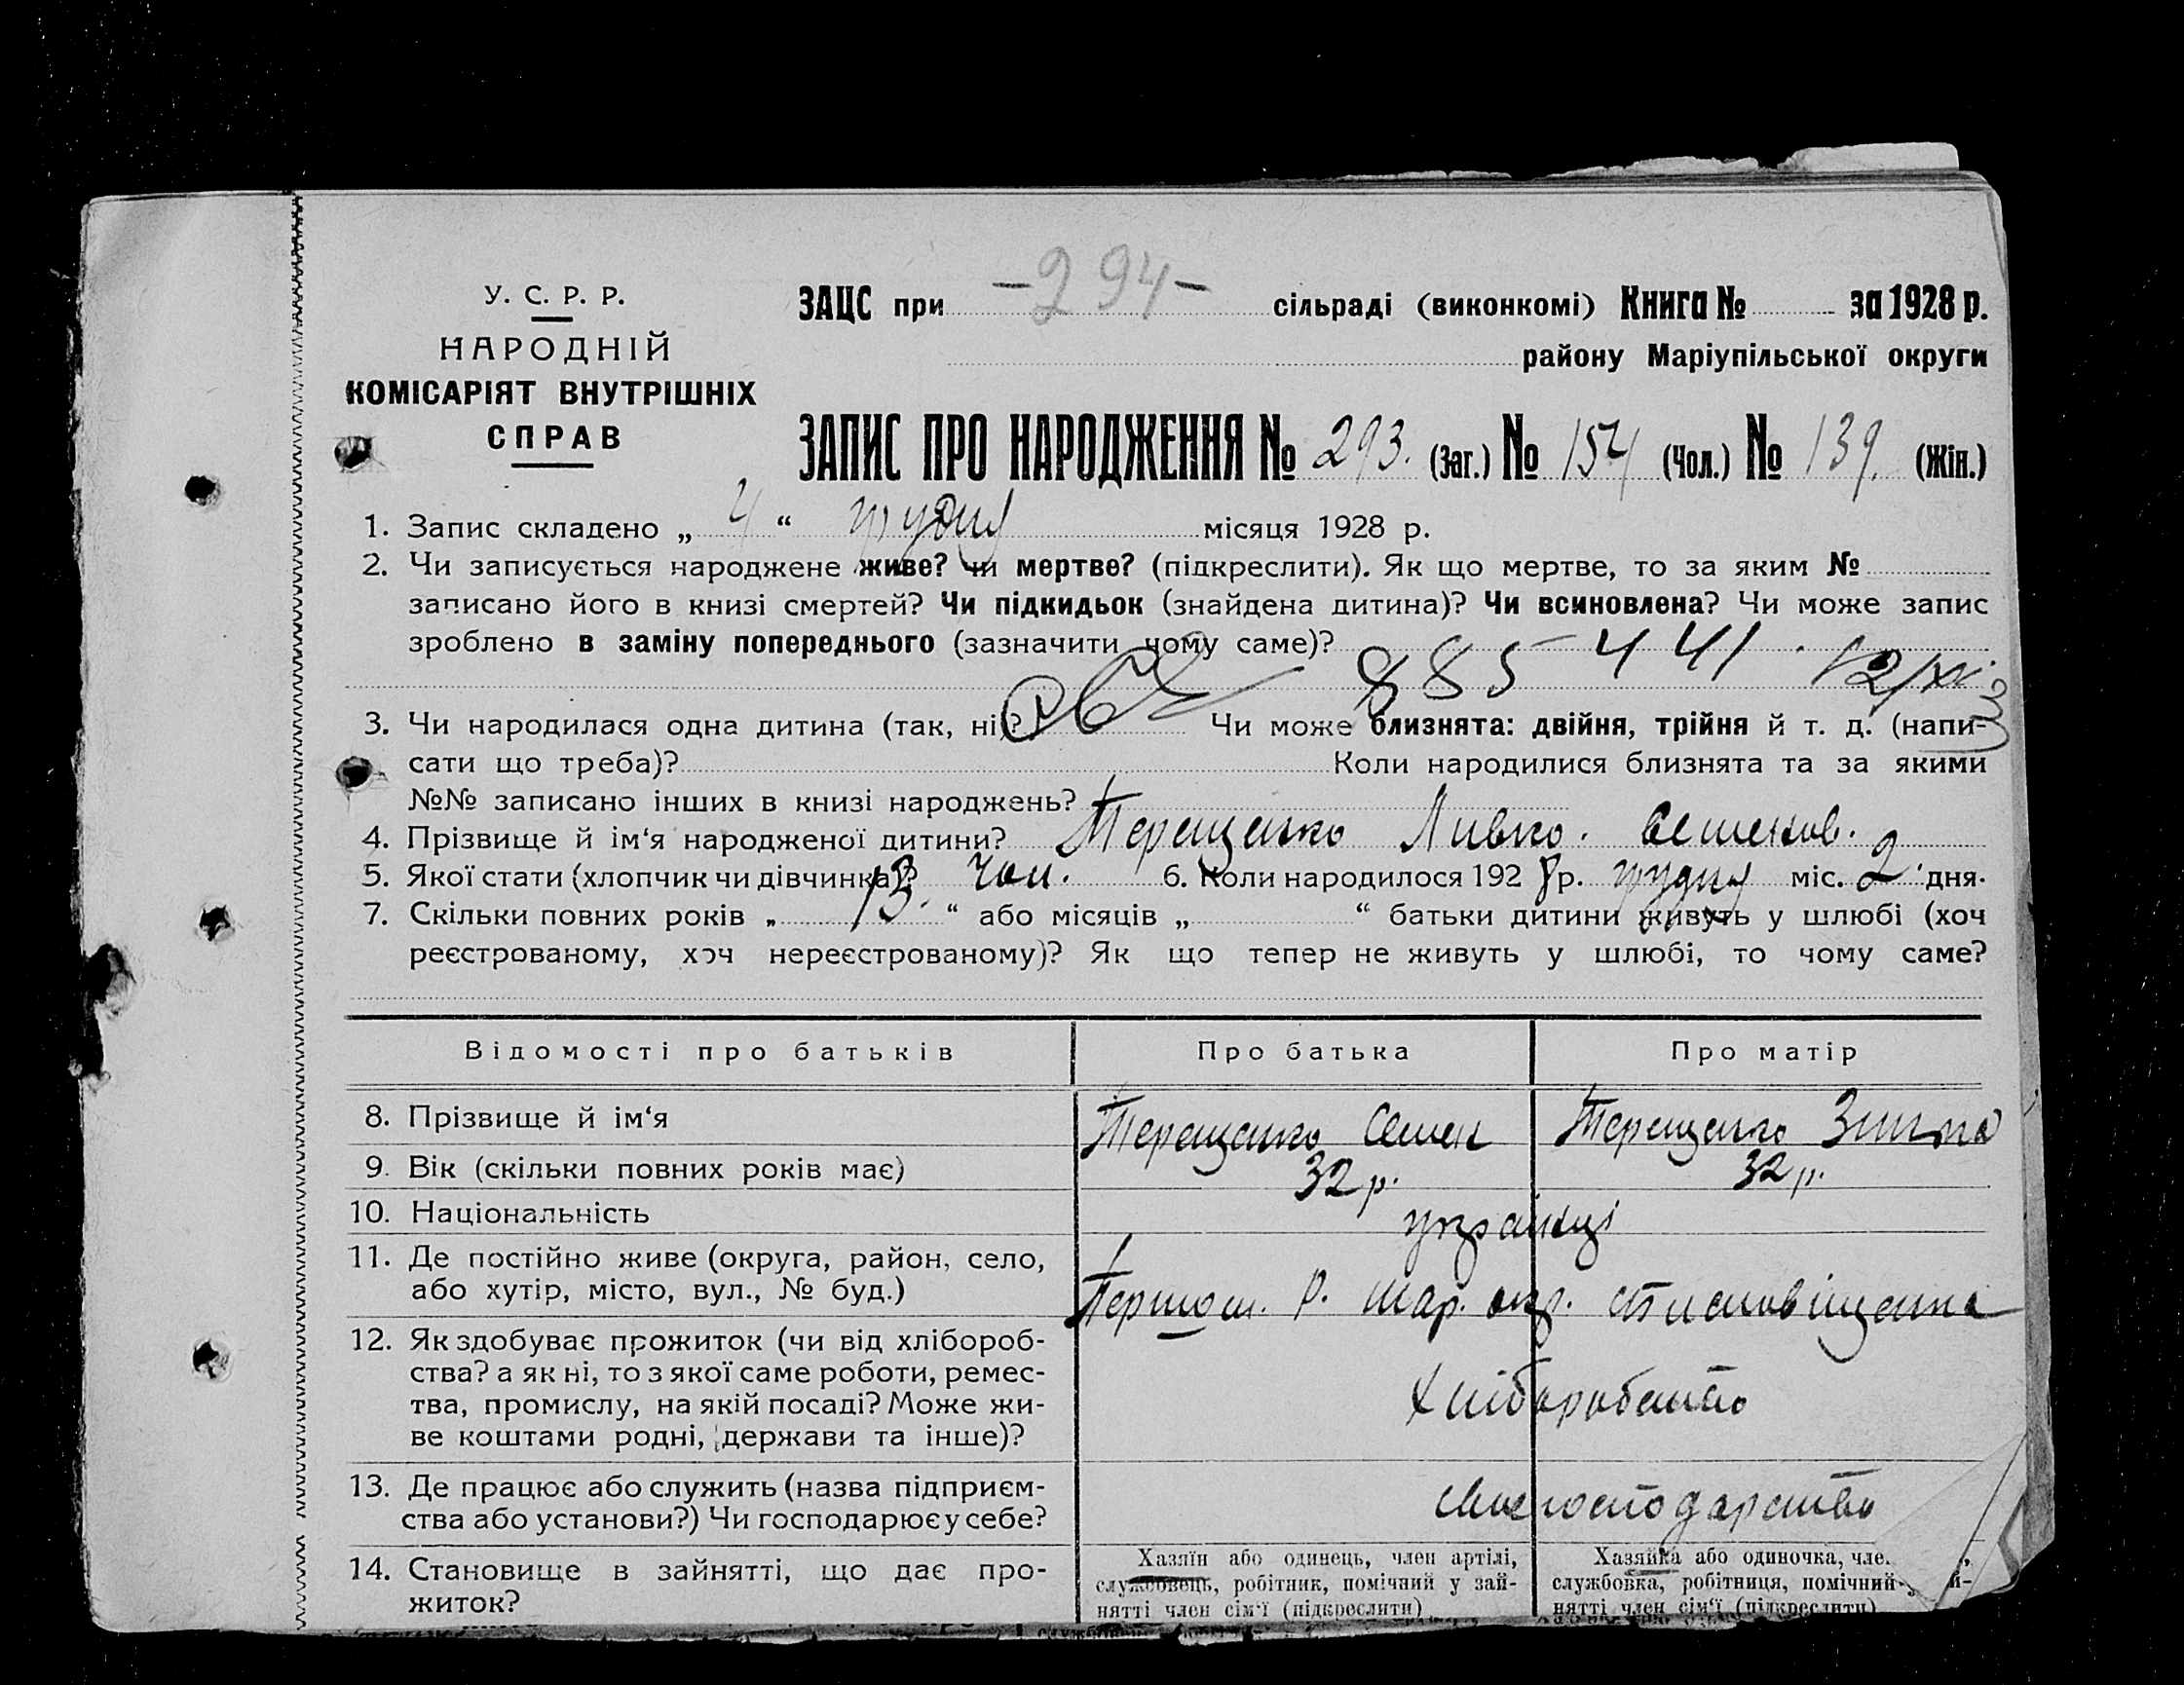 У. С. Р. Р.
НАРОДНІЙ
КОМІСАРІЯТ ВНУТРІШНІХ
СПРАВ
-294-
ЗАЦС при сільраді (виконкомі) Книга № за 1928 р.
району Маріупільської округи
ЗАПИС ПРО НАРОДЖЕННЯ № 293. (Заг.) № 154 (Чол.) № 139. (Жін.)
1. Запис складено „ 4 “ грудня місяця 1928 р.
2. Чи записується народжене живе? чи мертве? (підкреслити). Як що мертве, то за яким №
записано його в книзі смертей? Чи підкидьок (знайдена дитина)? Чи всиновлена? Чи може запис
зроблено в заміну попереднього (зазначити чому саме)?
885441. 12/XI
3. Чи народилася одна дитина (так, ні)? Чи може близнята: двійня, трійня й т. д. (напи-
сати що треба)? Коли народилися близнята та за якими
№№ записано інших в книзі народжень?
4. Прізвище й ім‘я народженої дитини? Терещенко Ливко. Семенов.
5. Якої стати (хлопчик чи дівчинка)? чол. 6. Коли народилося 1928 р. грудня міс. 2 дня.
7. Скільки повних років „ 13. “ або місяців „ “ батьки дитини живуть у шлюбі (хоч
реєстрованому, хоч нереєстрованому)? Як що тепер не живуть у шлюбі, то чому саме?
Відомості про батьків Про батька Про матір
8. Прізвище й ім‘я Терещенко Семен Терещенко
9. Вік (скільки повних років має) 32 р. 32 р.
10. Національність українці
11. Де постійно живе (округа, район, село,
або хутір, місто, вул., № буд.) р. Мар. окр.
12. Як здобуває прожиток (чи від хлібороб-
ства? а як ні, то з якої саме роботи, ремес-
тва, промислу, на якій посаді? Може жи-
ве коштами родні, держави та інше)? Хліборобство
13. Де працює або служить (назва підприєм-
ства або установи?) Чи господарює у себе? своє господарство
14. Становище в зайнятті, що дає про-
житок?
Хазяїн або одинець, член артілі,
службовець, робітник, помічний у зай-
нятті член сім‘ї (підкреслити)
Хазяйка або одиночка,
службовка, робітниця, помічний
нятті член сім‘ї (підкреслити)